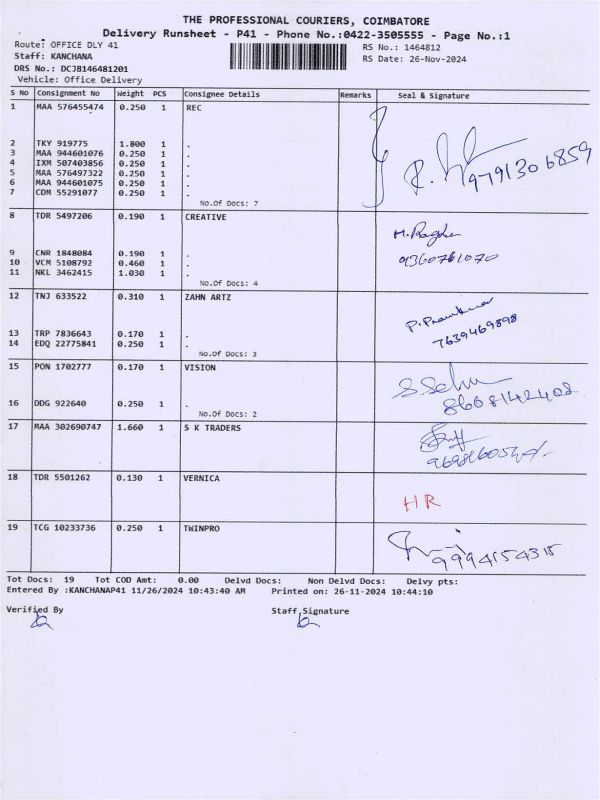 THE PROFESSIONAL COURIERS, COIMBATORE
Delivery Runsheet - P41 - Phone No.:0422-3505555 - Page No.:1
Route: OFFICE DLY 41 RS No.: 1464812
Staff: KANCHANA RS Date: 26-Nov-2024
DRS No.: DCJB146481201
Vehicle: Office Delivery
S No Consignment No Weight PCS Consignee Details Remarks Seal & Signature
1 MAA 576455474 0.250 1 REC
2 TKY 919775 1.800 1 .
3 MAA 944601076 0.250 1 .
4 IXM 507403856 0.250 1 .
5 MAA 576497322 0.250 1 .
6 MAA 944601075 0.250 1 .
7 CDM 55291077 0.250 1 .
9791306859
No.Of Docs: 7
8 TDR 5497206 0.190 1 CREATIVE
9 CNR 1848084 0.190 1 .
10 VCM 5108792 0.460 1 .
11 NKL 3462415 1.030 1 .
9360761070
No.Of Docs: 4
12 TNJ 633522 0.310 1 ZAHN ARTZ
13 TRP 7836643 0.170 1 .
14 EDQ 22775841 0.250 1 .
7639469898
No.Of Docs: 3
15 PON 1702777 0.170 1 VISION
16 DDG 922640 0.250 1 .
8608142408
No.Of Docs: 2
17 MAA 302690747 1.660 1 S K TRADERS
18 TDR 5501262 0.130 1 VERNICA
HR
19 TCG 10233736 0.250 1 TWINPRO
9994154315
Tot Docs: 19 Tot COD Amt: 0.00 Delvd Docs: Non Delvd Docs: Delvy pts:
Entered By :KANCHANAP41 11/26/2024 10:43:40 AM Printed on: 26-11-2024 10:44:10
Verified By Staff Signature